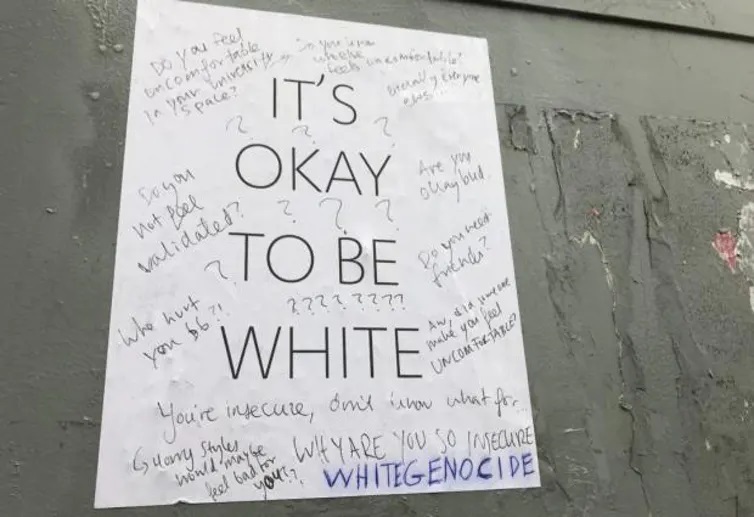 Do you feel
uncomfortable
in your
space?
feels uncomfortable?
IT'S
? ? ?
OKAY
Are you
okay bud
Do you
not feel
validated?
? ? ?
TO BE
?
Do you need
friends?
????????
Who hurt
you bb?!
WHITE
Aw, did someone
make you feel
UNCOMFORTABLE?
You're insecure, don't know what for...
Harry Styles
would maybe
feel bad for
you??
WHY ARE YOU SO INSECURE
WHITEGENOCIDE